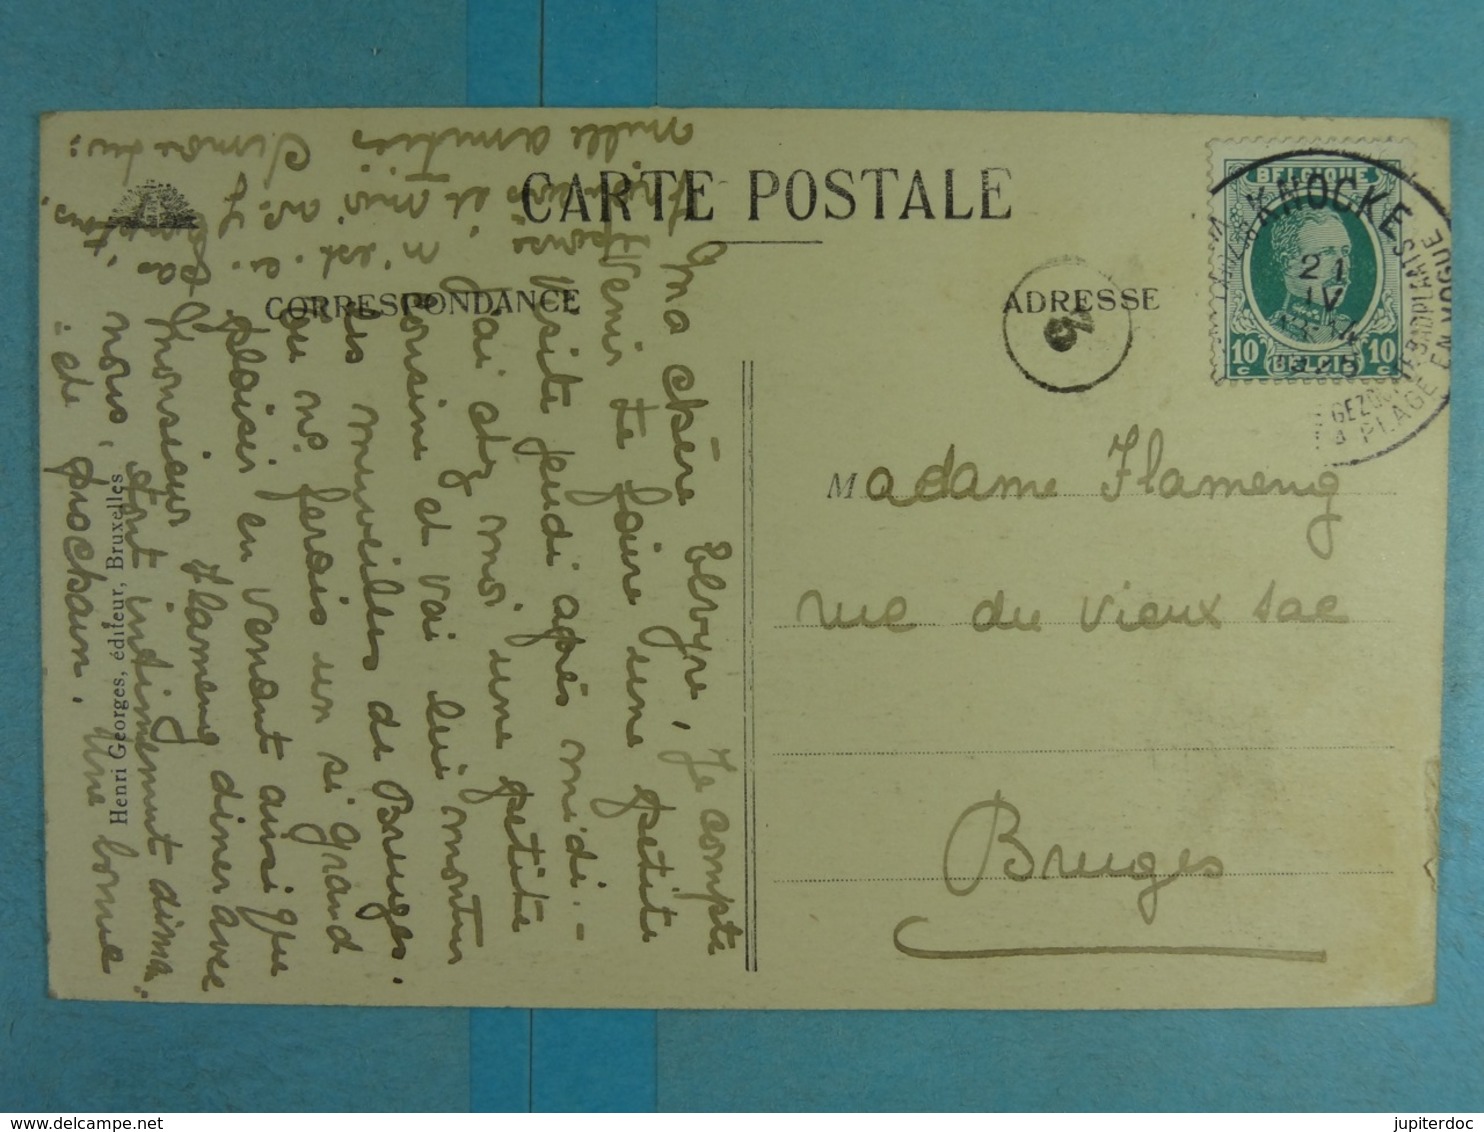 CARTE POSTALE
CORRESPONDANCE
ADRESSE
BELGIQUE
10 c BELGIE 10 c
KNOCKE
21
IV
PLAGE EN VOGUE
Madame Flameng
rue du vieux sac
Bruges
Ma chère Elvyre, Je compte
venir te faire une petite
visite jeudi après midi. -
J'ai chez moi, une petite
cousine et vai lui montrer
les merveilles de Bruges.
Tu me ferais un si grand
plaisir en venant ainsi que
Monsieur Flameng diner avec
nous, tout intimement dima
de prochain. Une bonne
n'est-ce pas
et mes
mille amitiés
Simone
Henri Georges, éditeur, Bruxelles
jupiterdoc
delcampe.net